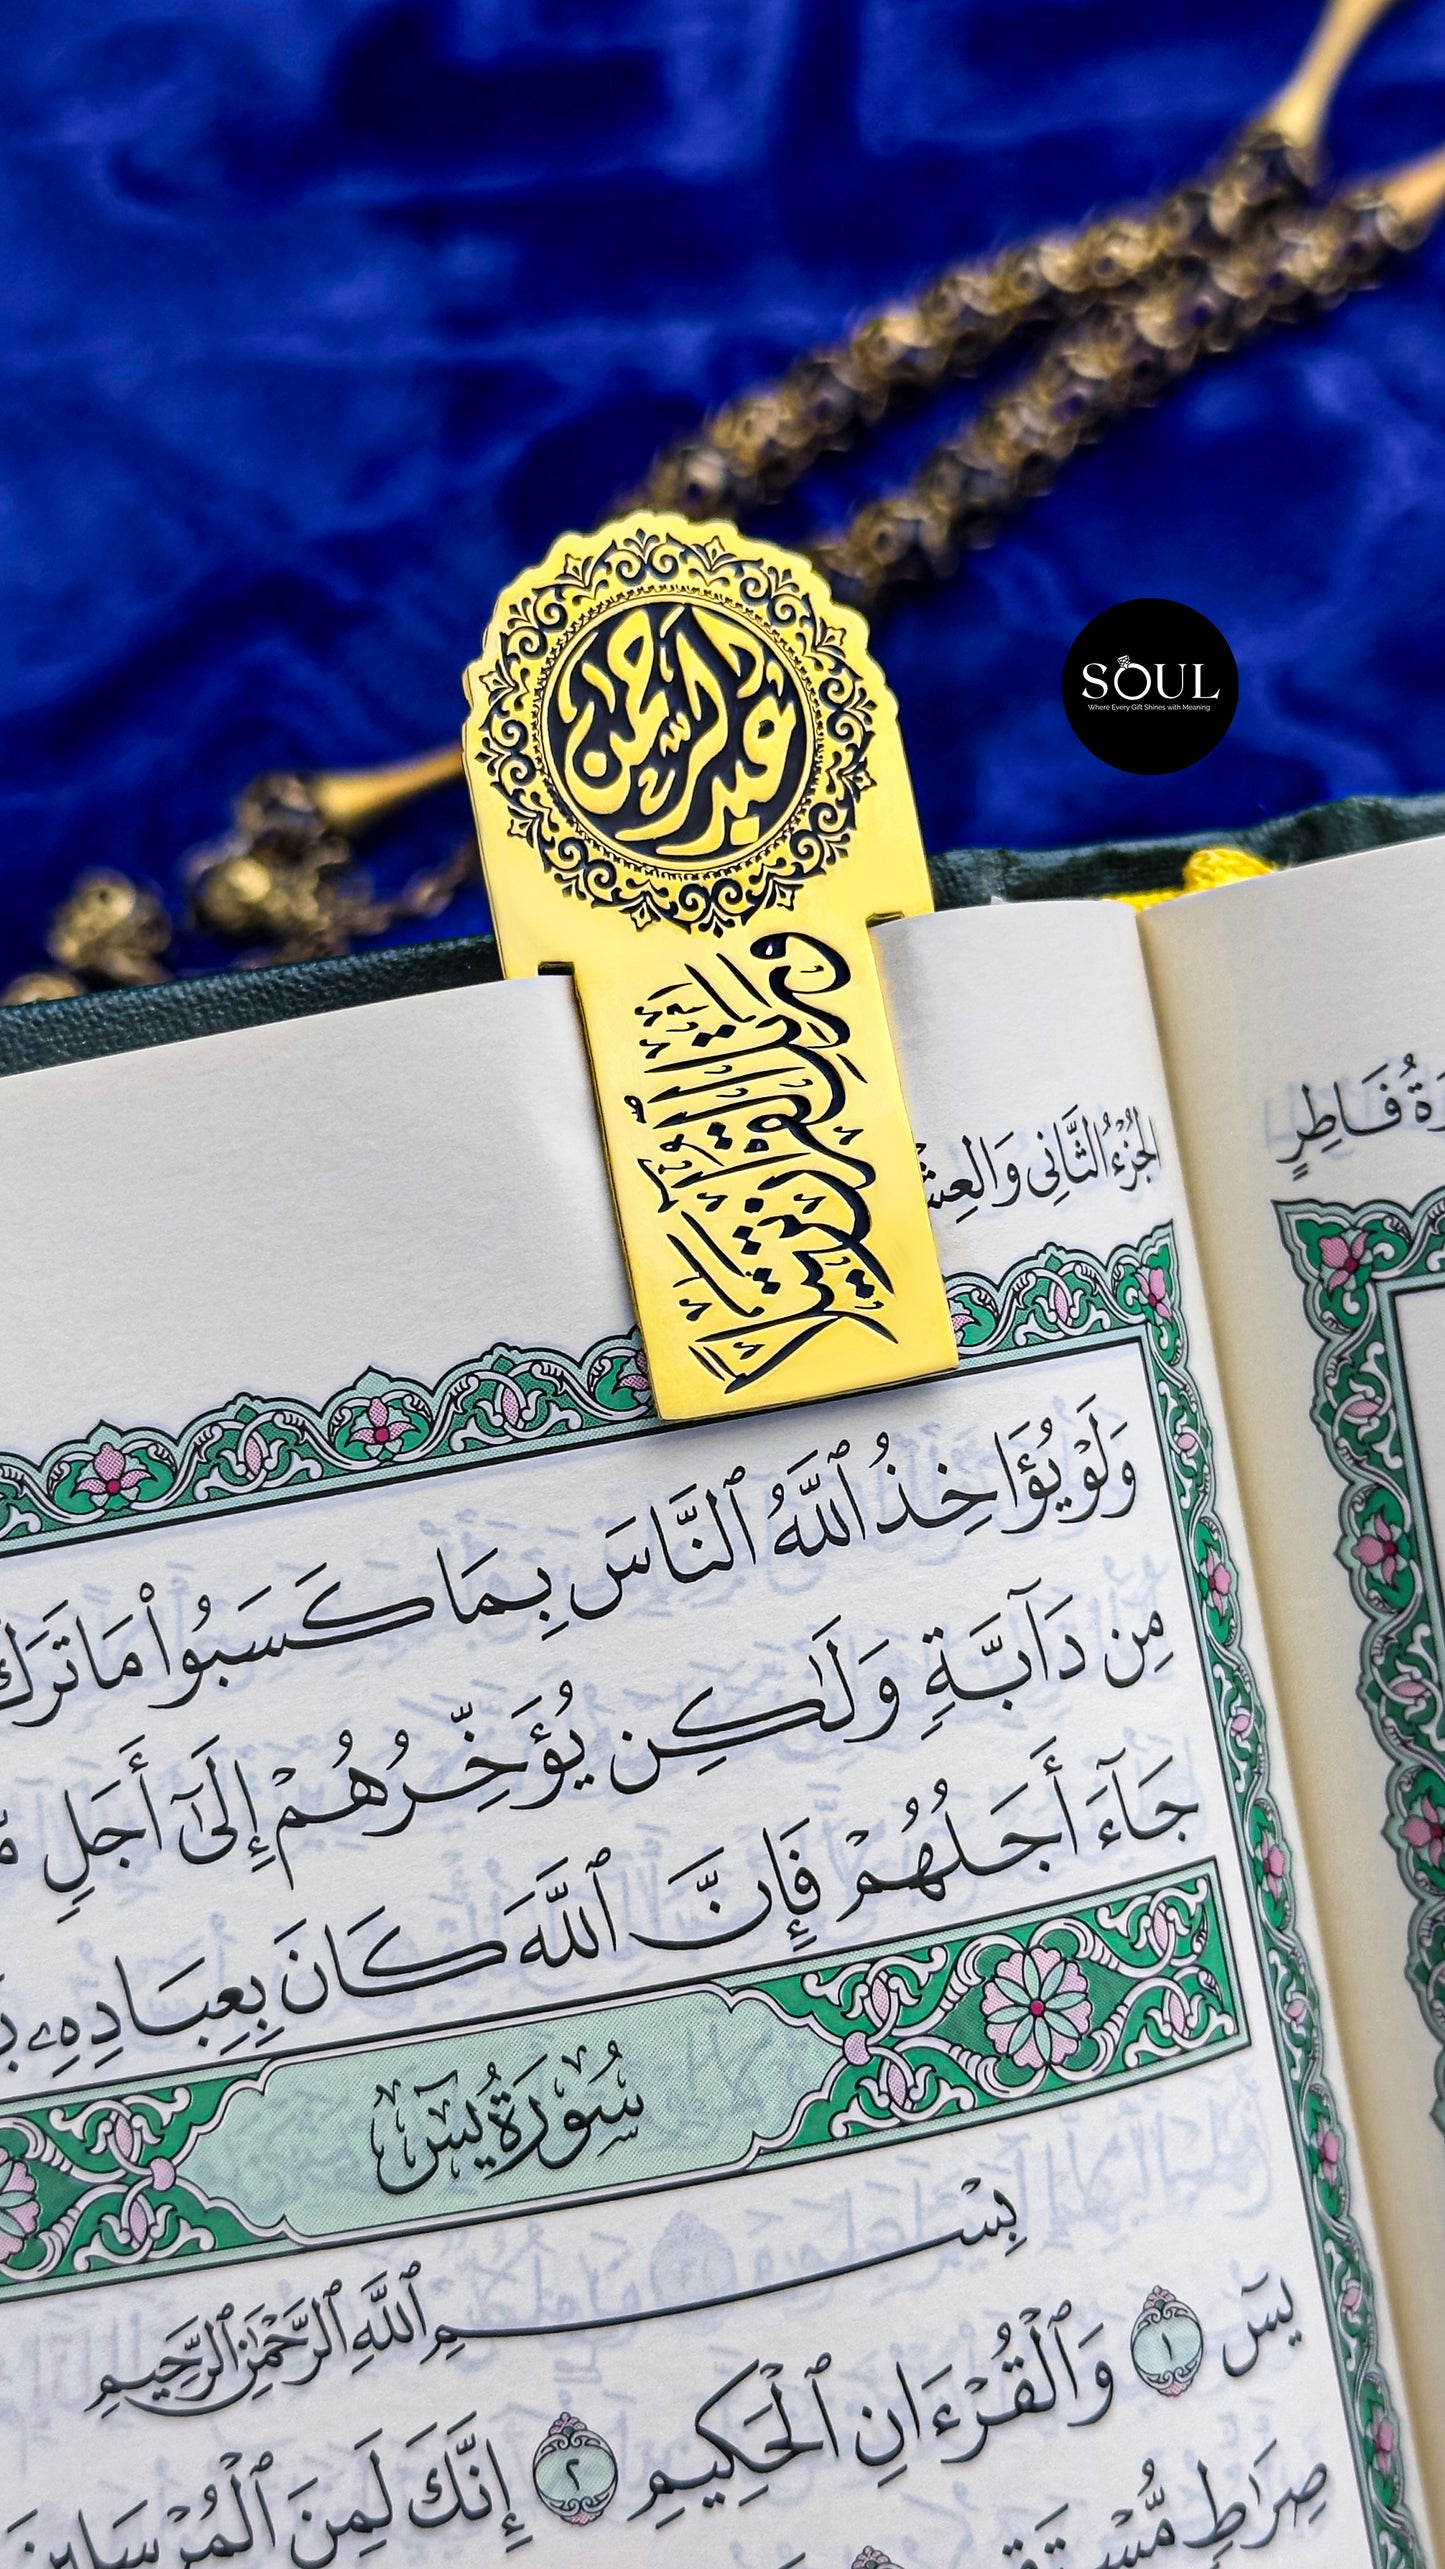 عبد الرحمن
ورتل القرآن ترتيلا
SOUL
Where Every Gift Shines with Meaning
الجُزْءُ الثَّانِي وَالعِشْ
رَةُ فَاطِرٍ
وَلَوْ يُؤَاخِذُ ٱللَّهُ ٱلنَّاسَ بِمَا كَسَبُوا۟ مَا تَرَكَ
مِن دَآبَّةٍ وَلَٰكِن يُؤَخِّرُهُمْ إِلَىٰٓ أَجَلٍ
جَآءَ أَجَلُهُمْ فَإِنَّ ٱللَّهَ كَانَ بِعِبَادِهِۦ
سُورَةُ يسٓ
بِسْمِ ٱللَّهِ ٱلرَّحْمَٰنِ ٱلرَّحِيمِ
يسٓ ١ وَٱلْقُرْءَانِ ٱلْحَكِيمِ ٢ إِنَّكَ لَمِنَ ٱلْمُرْسَلِينَ
صِرَٰطٍ مُّسْتَقِيمٍ